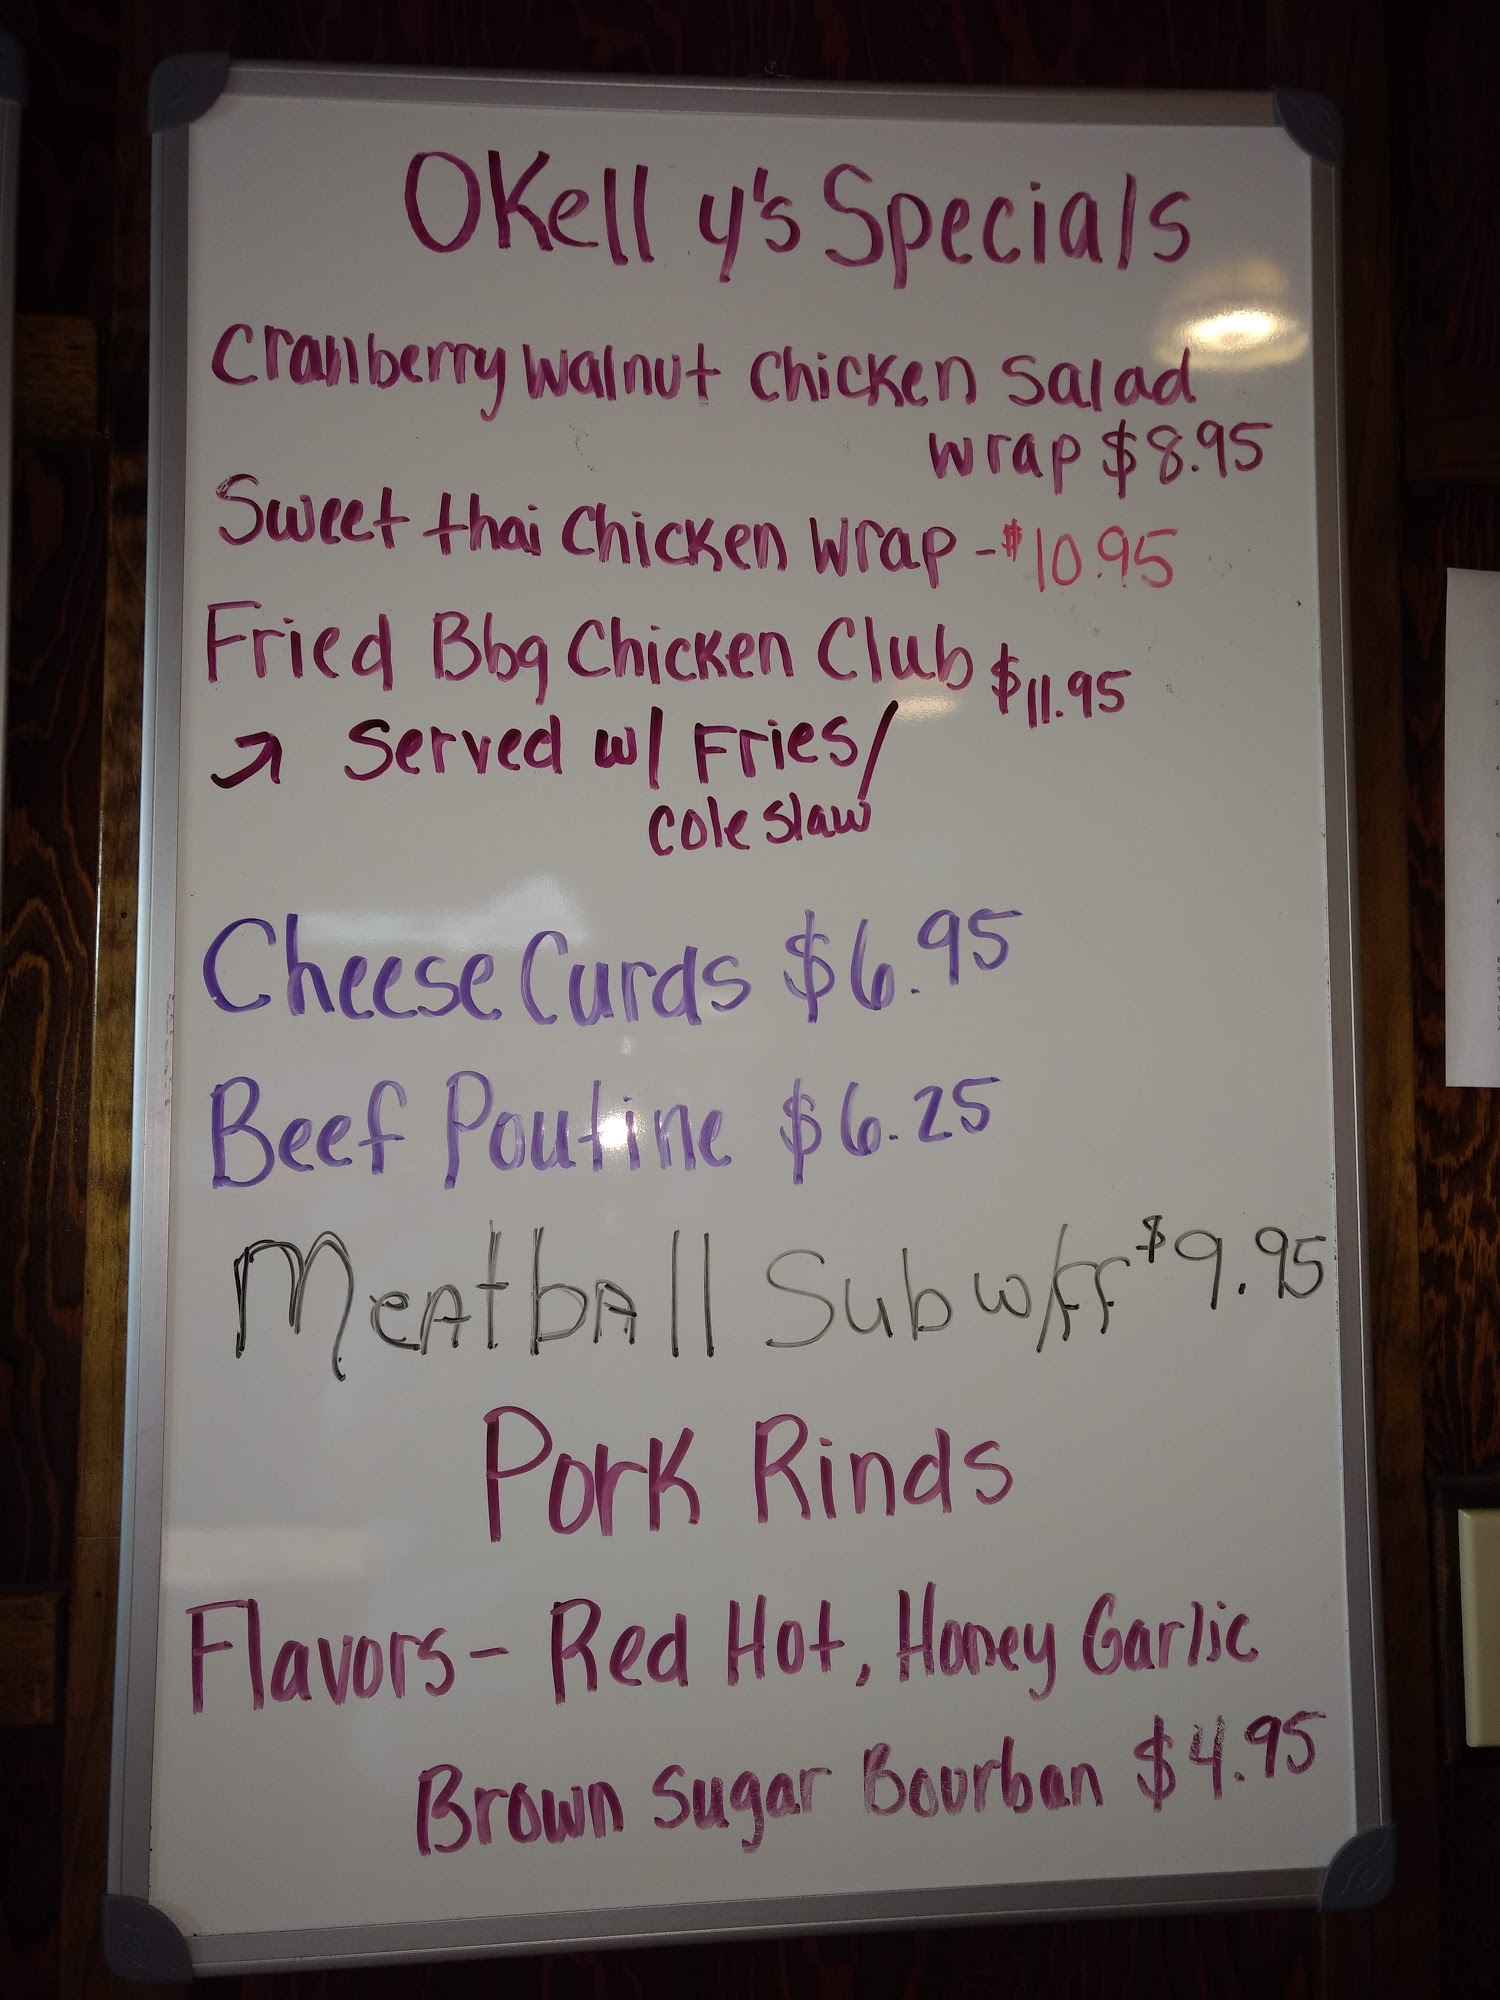 OKelly's Specials
Cranberry Walnut Chicken Salad
Wrap $8.95
Sweet thai Chicken Wrap - $10.95
Fried Bbq Chicken Club $11.95
↗ Served w/ Fries/
coleslaw
Cheese Curds $6.95
Beef Poutine $6.25
Meatball Sub w/FF $9.95
Pork Rinds
Flavors - Red Hot, Honey Garlic
Brown Sugar Bourban $4.95